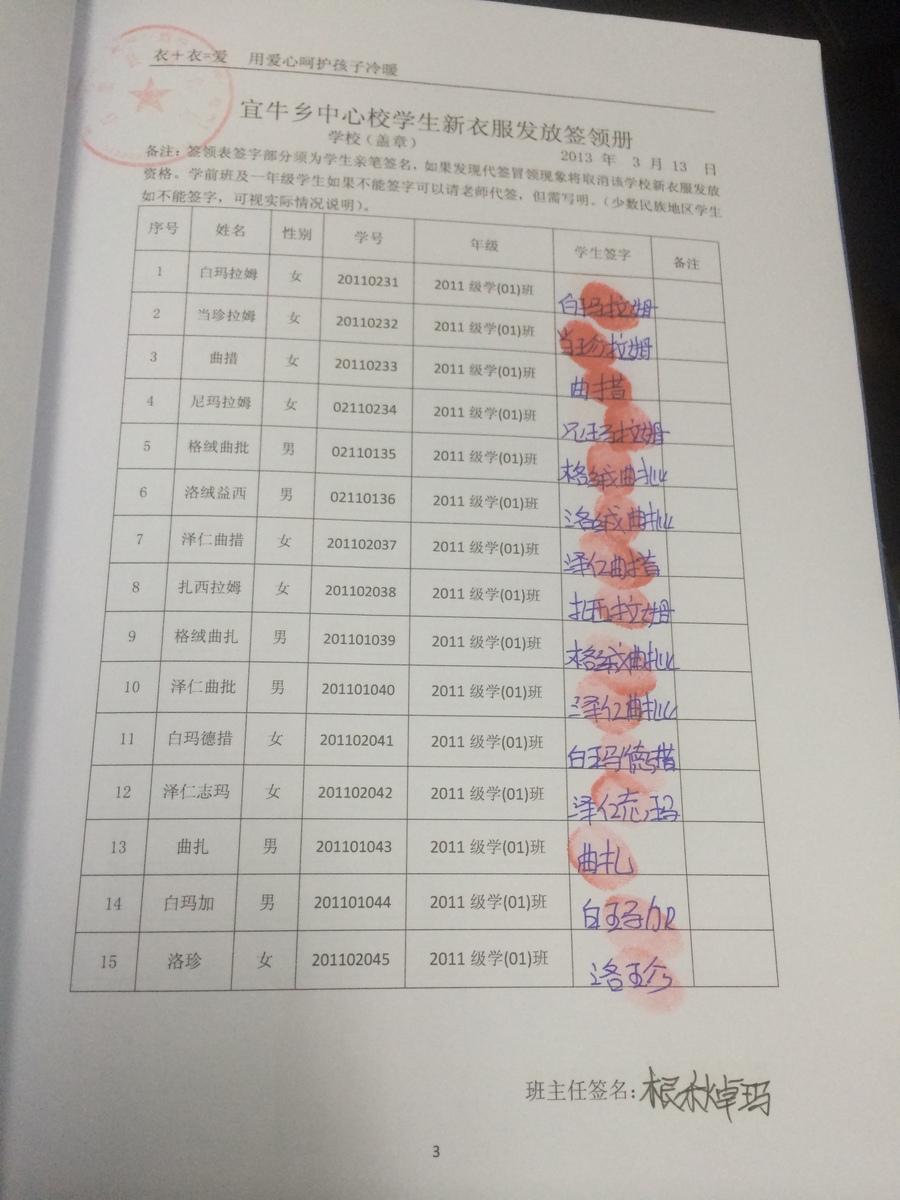 衣+衣=爱 用爱心呵护孩子冷暖
宜牛乡中心校学生新衣服发放签领册
学校（盖章） 2013 年 3 月 13 日
备注：签领表签字部分须为学生亲笔签名，如果发现代签冒领现象将取消该学校新衣服发放
资格。学前班及一年级学生如果不能签字可以请老师代签，但需写明。（少数民族地区学生
如不能签字，可视实际情况说明）。
序号 姓名 性别 学号 年级 学生签字 备注
1 白玛拉姆 女 20110231 2011 级学(01)班 白玛拉姆
2 当珍拉姆 女 20110232 2011 级学(01)班 当珍拉姆
3 曲措 女 20110233 2011 级学(01)班 曲措
4 尼玛拉姆 女 02110234 2011 级学(01)班 尼玛拉姆
5 格绒曲批 男 02110135 2011 级学(01)班 格绒曲批
6 洛绒益西 男 02110136 2011 级学(01)班 洛绒曲批
7 泽仁曲措 女 201102037 2011 级学(01)班 泽仁曲措
8 扎西拉姆 女 201102038 2011 级学(01)班 扎西拉姆
9 格绒曲扎 男 201101039 2011 级学(01)班 格绒曲批
10 泽仁曲批 男 201101040 2011 级学(01)班 泽仁曲批
11 白玛德措 女 201102041 2011 级学(01)班 白玛德措
12 泽仁志玛 女 201102042 2011 级学(01)班 泽仁志玛
13 曲扎 男 201101043 2011 级学(01)班 曲扎
14 白玛加 男 201101044 2011 级学(01)班 白玛加
15 洛珍 女 201102045 2011 级学(01)班 洛珍
班主任签名：根秋卓玛
3